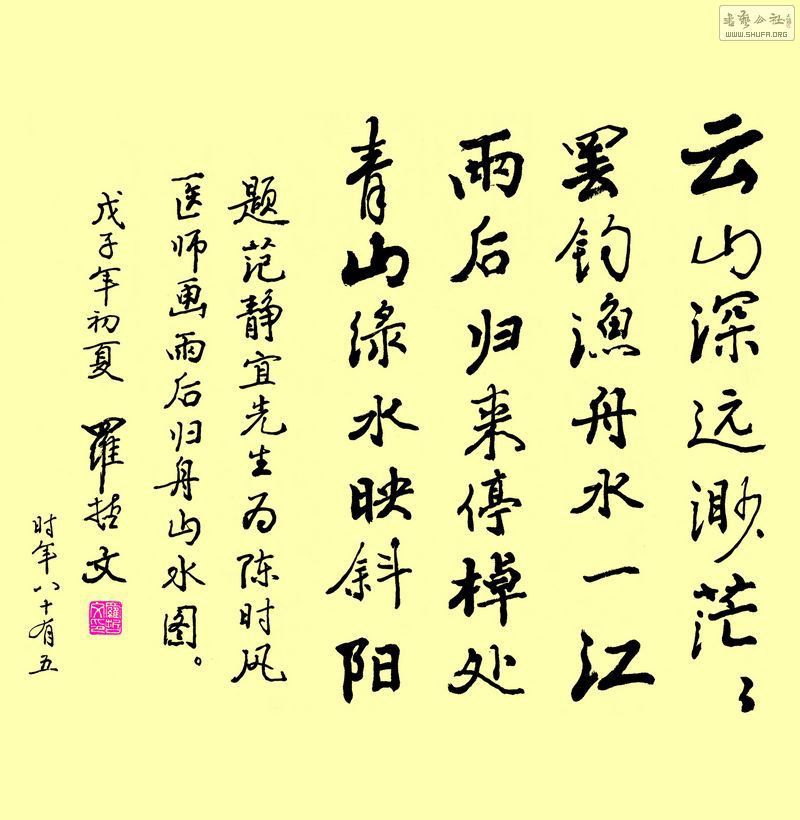 云山深远渺茫々
罢钓渔舟水一江
雨后归来停棹处
青山绿水映斜阳
题范静宜先生为陈时风
医师画雨后归舟山水图。
戊子年初夏 羅哲文
时年八十有五
羅哲文印
書藝公社
WWW.SHUFA.ORG